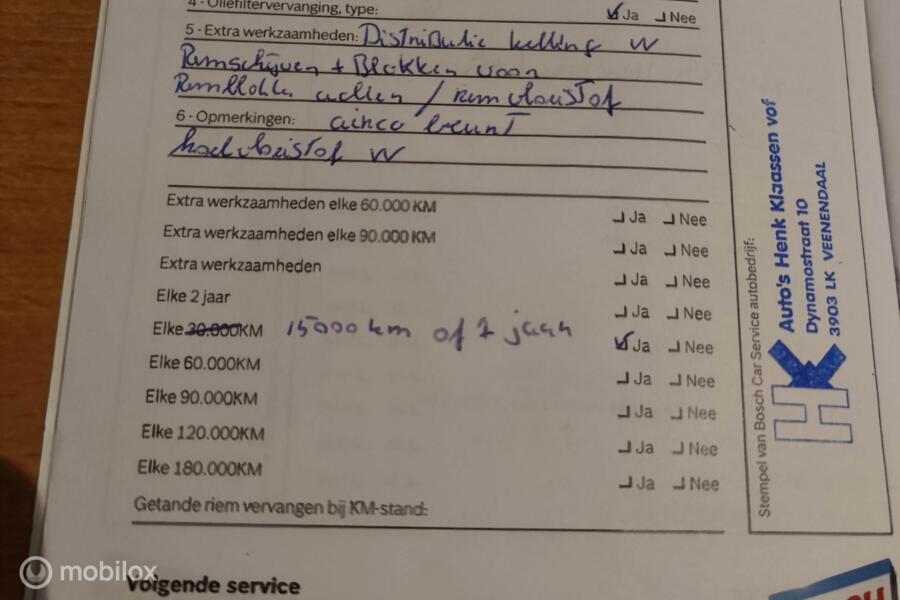 4 - Oliefiltervervanging, type: Ja Nee
5 - Extra werkzaamheden: Distributie ketting W
Remschijven + Blokken voor
Remblokken achter / remvloeistof
6 - Opmerkingen: airco beurt
koelvloeistof W
Extra werkzaamheden elke 60.000 KM Ja Nee
Extra werkzaamheden elke 90.000 KM Ja Nee
Extra werkzaamheden Ja Nee
Elke 2 jaar Ja Nee
Elke 30.000KM 15000 km of 1 jaar Ja Nee
Elke 60.000KM Ja Nee
Elke 90.000KM Ja Nee
Elke 120.000KM Ja Nee
Elke 180.000KM Ja Nee
Getande riem vervangen bij KM-stand:
Volgende service
Stempel van Bosch Car Service autobedrijf:
HK
Auto's Henk Klaassen vof
Dynamostraat 10
3903 LK VEENENDAAL
mobilox